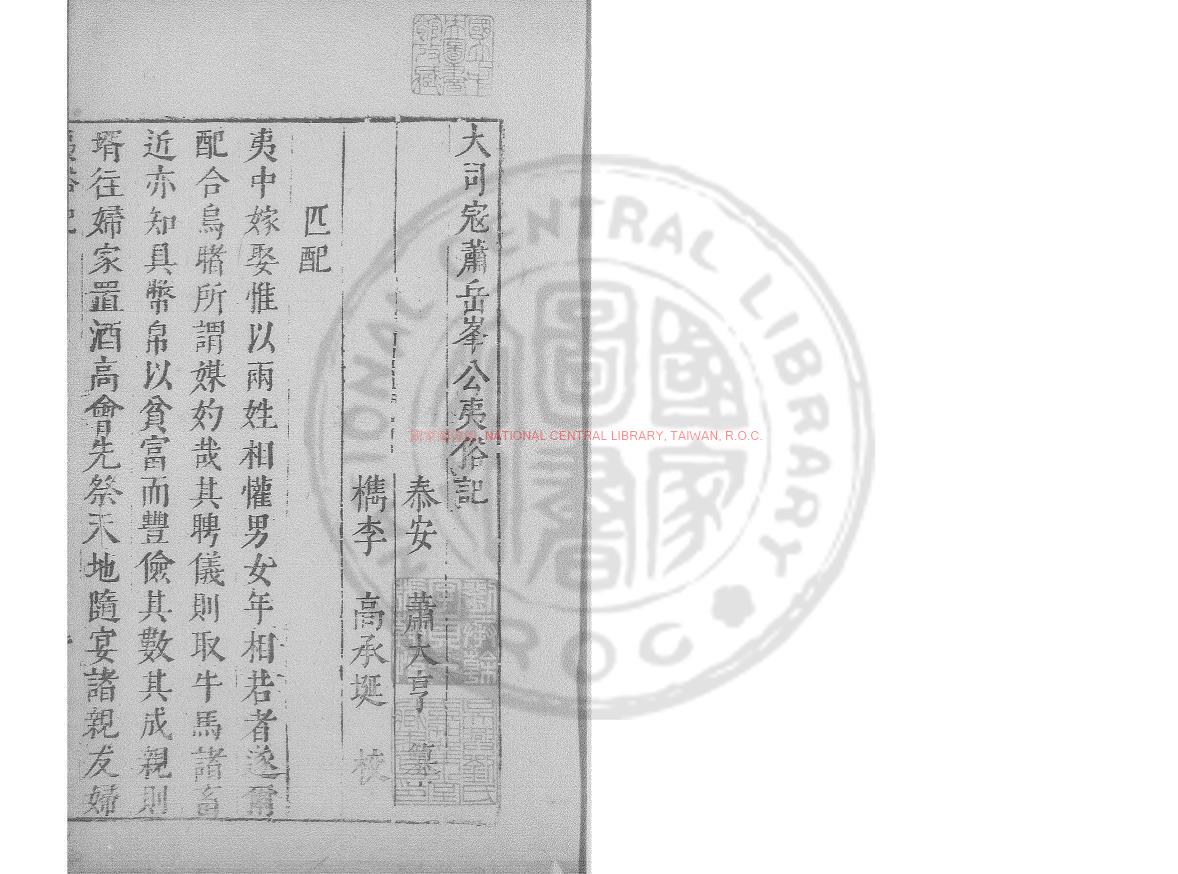 大司寇蕭岳峯公夷俗記
泰安 蕭大亨 纂
檇李 高承埏 校
匹配
夷中嫁娶惟以兩姓相懽男女年相若者遂爾
配合烏睹所謂媒妁哉其聘儀則取牛馬諸畜
近亦知具幣帛以貧富而豐儉其數其成親則
壻往婦家置酒高會先祭天地隨宴諸親友婦
夷俗記
國家圖書館 NATIONAL CENTRAL LIBRARY, TAIWAN, R.O.C.
NATIONAL CENTRAL LIBRARY
R.O.C